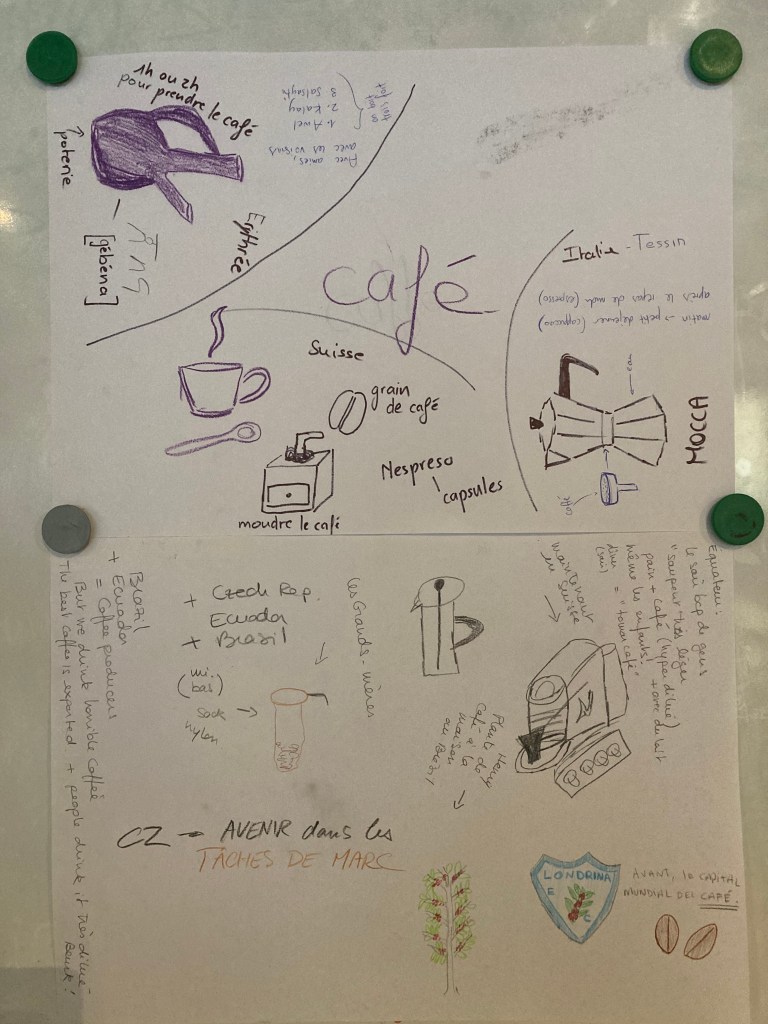 1h ou 2h
pour prendre le café
poterie
[gébéna]
Erythrée
Avec amies,
avec les voisins
1. Awel
2. Kalay
3.
on boit
trois fois
café
Suisse
grain
de café
moudre le café
Nespreso
capsules
Italie - Tessin
matin → petit déjeuner (cappuccino)
après le repas de midi (espresso)
MOCCA
eau
café
Brazil
+ Ecuador
= Coffee producers
But we drink horrible coffee
The best coffee is exported + people drink it très dilué
Beurk!
+ Czech Rep.
Ecuador
+ Brasil
(mi-bas)
sock
nylon
les Grands-mères
maintenant
en Suisse
Équateur:
le soir bcp de gens
"soupent" très léger
pain + café (hyper dilué)
même les enfants! + avec du lait
dîner = "tomar café"
(soir)
CZ → AVENIR dans les
TÂCHES DE MARC
LONDRINA
E C
AVANT, LE CAPITAL
MUNDIAL DEL CAFÉ.